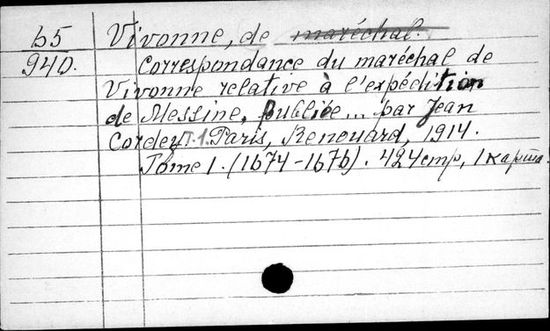 b5 Vivonne, de maréchal.
940. Correspondance du maréchal de
Vivonne relative à l'expédition
de Messine, publiée... par Jean
Cordey T.1. Paris, Renouard, 1914.
Tome 1. (1674-1676). 424 стр, 1 карта.